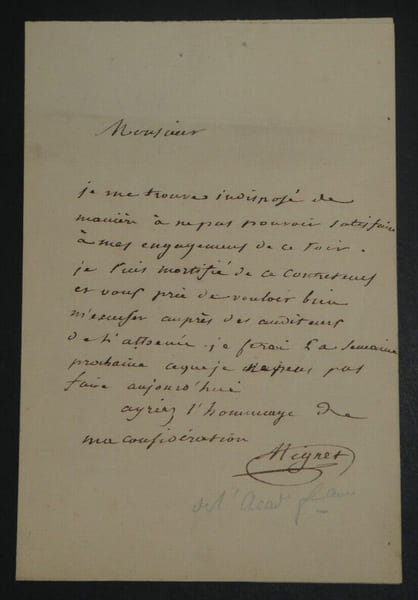 Monsieur
je me trouve indisposé de
manière à ne pas pouvoir satisfaire
à mes engagemens de ce soir.
je suis mortifié de ce contretems
et vous prie de vouloir bien
m'excuser auprès des auditeurs
de l'athenée. je ferai la semaine
prochaine ce que je ne peux pas
faire aujourd'hui
agréez l'hommage de
ma considération
Mignet
de l'Acad